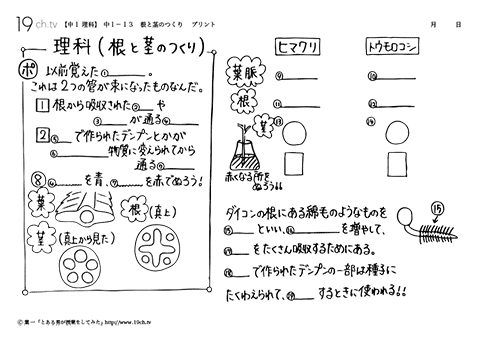 19ch.tv 【中1 理科】 中1-13 根と茎のつくり プリント 月 日
理科(根と茎のつくり)
ポ 以前覚えた①____。
これは2つの管が束になったものなんだ。
1 根から吸収された②____や
③____が通る④____
2 ⑤____で作られたデンプンとかが
⑥____物質に変えられてから
通る⑦____
⑧____を青、____を赤でぬろう!
葉
根(真上)
茎(真上から見た)
ヒマワリ トウモロコシ
葉脈 ⑨____ ⑩____
根 ⑪____ ⑫____
茎 ⑬ ⑭
赤くなる所を
ぬろう!!
ダイコンの根にある綿ものようなものを ⑮
⑮____といい、⑯____を増やして、
⑰____をたくさん吸収するためにある。
⑱____で作られたデンプンの一部は種子に
たくわえられて、⑲____するときに使われる!!
© 葉一「とある男が授業をしてみた」http://www.19ch.tv